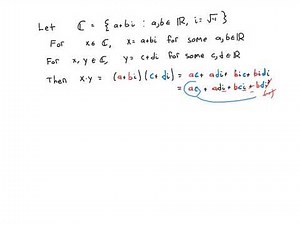 Let ℂ = { a+bi : a,b∈ℝ, i=√-1 }
For x∈ℂ, x=a+bi for some a,b∈ℝ
For x,y∈ℂ, y=c+di for some c,d∈ℝ
Then x·y = (a+bi)(c+di) = ac + adi + bic + bidi
= ac + adi + bci + bdi²